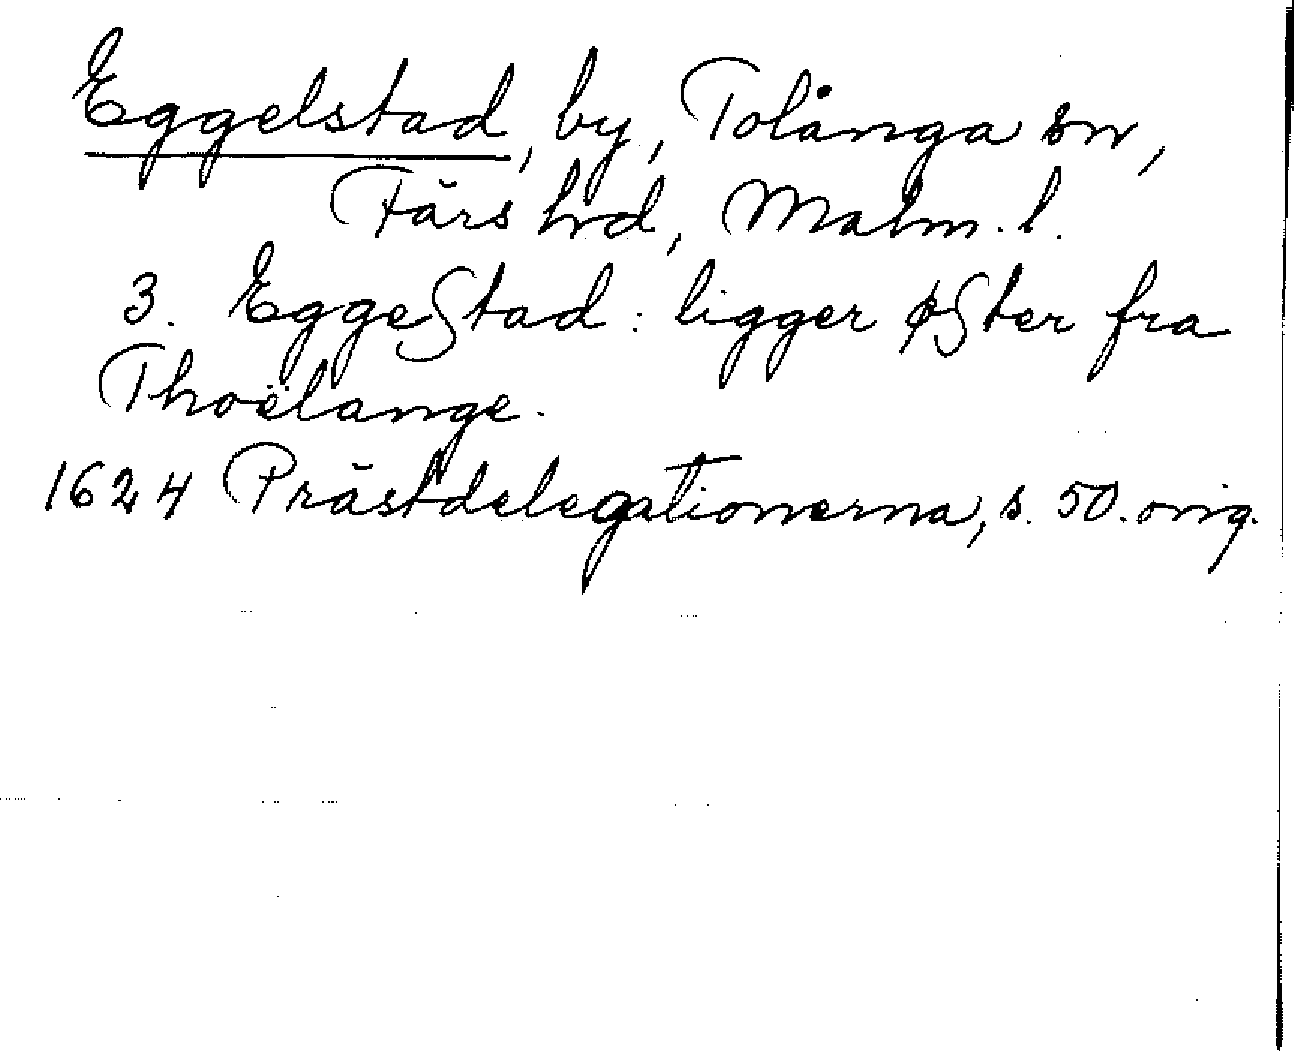 Eggelstad, by, Tolånga sn,
Färs hd, Malm. l.
3. Eggeſtad: ligger øſter fra
Thoëlange.
1624 Prästdelegationerna, s. 50. orig.